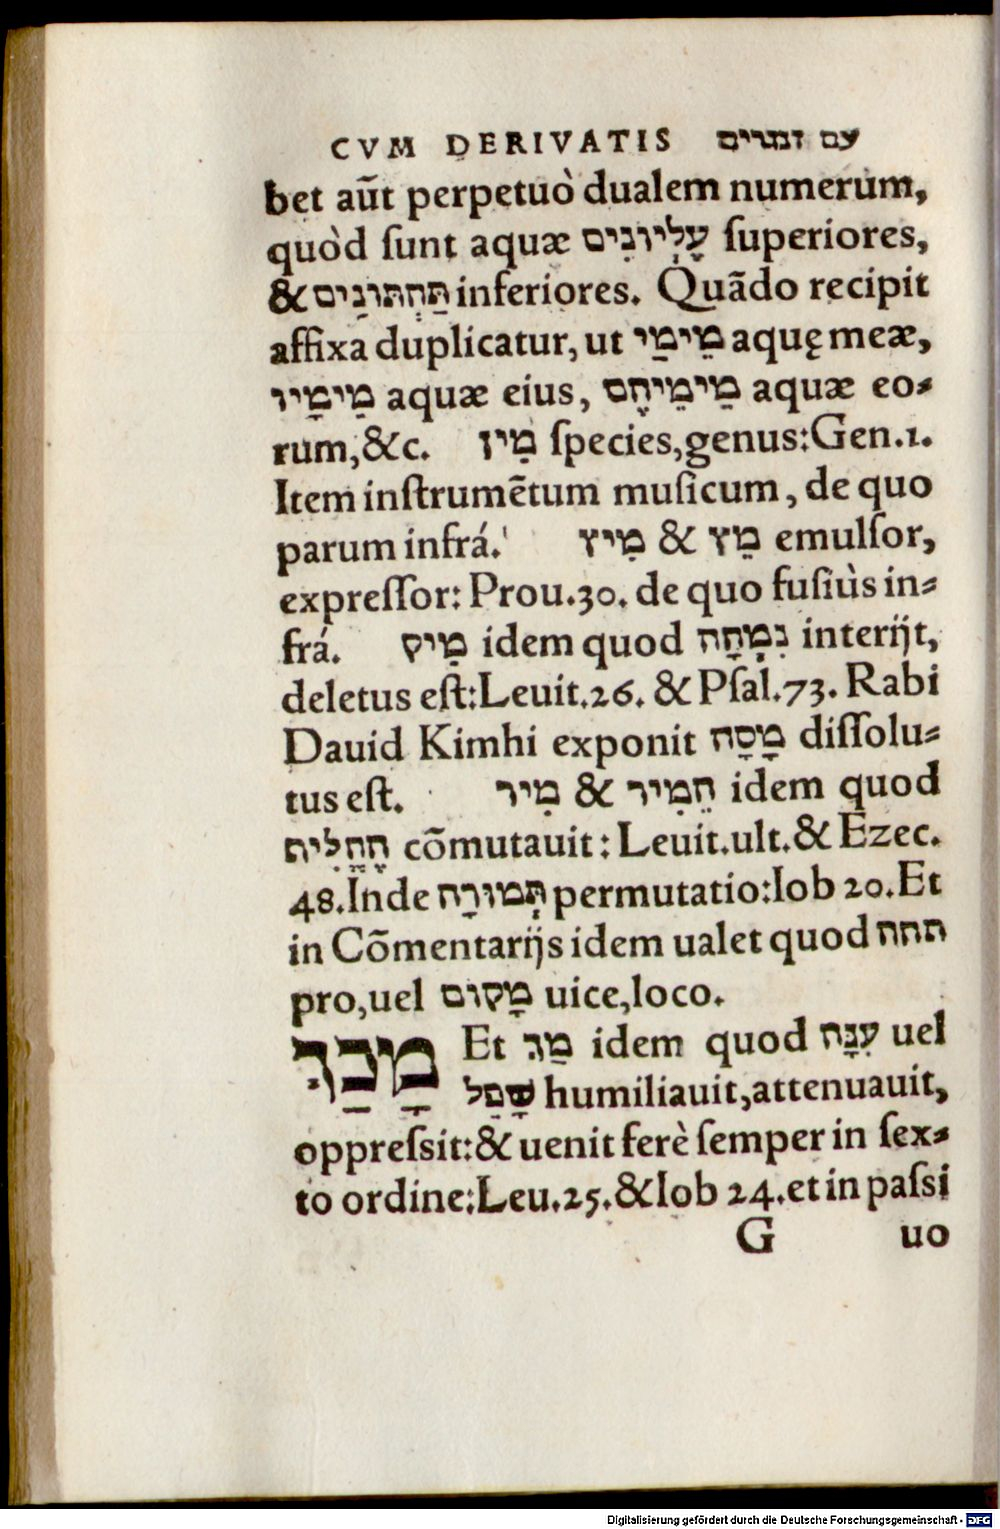 CVM DERIVATIS עם זמרים
bet aũt perpetuò dualem numerum,
quòd ſunt aquæ עֶלְיוֹנִים ſuperiores,
& תַּחְתּוֹנִים inferiores. Quãdo recipit
affixa duplicatur, ut מֵימַי aquę meæ,
מֵימָיו aquæ eius, מֵימֵיהֶם aquæ eo⸗
rum, &c. מִין ſpecies, genus: Gen.1.
Item inſtrumẽtum muſicum, de quo
parum infrá. מֵץ & מִיץ emulſor,
expreſſor: Prou.30. de quo fuſiùs in⸗
frá. מִיק idem quod נִמְחָה interijt,
deletus eſt: Leuit.26. & Pſal.73. Rabi
Dauid Kimhi exponit מָסָה diſſolu⸗
tus eſt. הֵמִיר & מִיר idem quod
הֶחֱלִיף cõmutauit: Leuit.ult. & Ezec.
48. Inde תְּמוּרָה permutatio: Iob 20. Et
in Cõmentarijs idem ualet quod תחת
pro, uel מָקוֹם uice, loco.
מָכַךְ Et מַךְ idem quod עִנָּה uel
שָׁפַל humiliauit, attenuauit,
oppreſsit: & uenit ferè ſemper in ſex⸗
to ordine: Leu.25. & Iob 24. et in paſsi
G uo
Digitalisierung gefördert durch die Deutsche Forschungsgemeinschaft - DFG